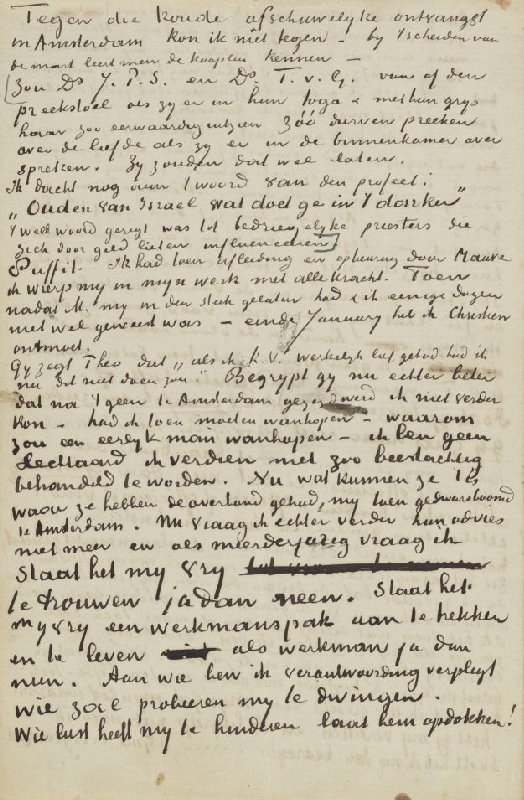 Tegen die koude afschuwelijke ontvangst
in Amsterdam kon ik niet tegen – bij 't scheiden van
de mart leert men de kooplui kennen –
Zou Ds J. P. S. en Ds T. v. G. van af den
preekstoel als zij er in hun toga & met hun grijs
haar zoo eerwaardig uitzien zóó durven preeken
over de liefde als zij er in de binnenkamer over
spreken. Zij zouden dat wel laten.
Ik dacht nog aan 't woord van den profeet:
„Ouden van Israel wat doet ge in 't donker"
't welk woord gerigt was tot bedriegelijke priesters die
zich door geld lieten influenceeren
Suffit. Ik had toen afleiding en opbeuring door Mauve
ik wierp mij in mijn werk met alle kracht. Toen
nadat M. mij in den steek gelaten had & ik eenige dagen
niet wel geweest was – eind January heb ik Christien
ontmoet.
Gij zegt Theo dat „als ik K.V. werkelijk lief gehad had ik
nu dit niet doen zou". Begrypt gy nu echter beter
dat na 't geen te Amsterdam ik niet verder
kon – had ik toen moeten wanhopen – waarom
zou een eerlyk man wanhopen – ik ben geen
slechtaard ik verdien niet zoo beestachtig
behandeld te worden. Nu wat kunnen ze 't is
waar ze hebben de overhand gehad, my toen gedwarsboomd
te Amsterdam. Nu vraag ik echter verder hun advies
niet meer en als meerderjarig vraag ik
staat het my vry
te trouwen ja dan neen. Staat het
my vry een werkmanspak aan te trekken
en te leven als werkman ja dan
neen. Aan wie ben ik verantwoording verpligt
wie zal probeeren my te dwingen.
Wie lust heeft my te hinderen laat hem opdokken!